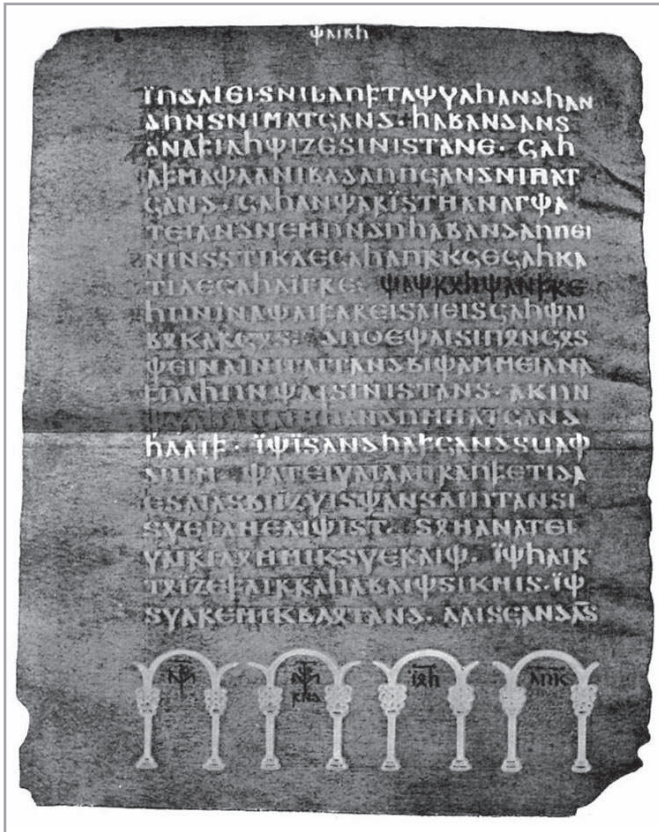 𐌸𐌰𐌹𐍂𐌷
𐌹̈𐌿𐌳𐌰𐌹𐌴𐌹𐍃𐌽𐌹𐌱𐌰𐌿𐍆𐍄𐌰𐌸𐍅𐌰𐌷𐌰𐌽𐌳𐌷𐌰𐌽
𐌳𐌿𐌽𐍃𐌽𐌹𐌼𐌰𐍄𐌾𐌰𐌽𐌳· 𐌷𐌰𐌱𐌰𐌽𐌳𐌰𐌽𐍃
𐌰𐌽𐌰𐍆𐌹𐌻𐌷𐌸𐌹𐌶𐌴𐍃𐌹𐌽𐌹𐍃𐍄𐌰𐌽𐌴· 𐌾𐌰𐌷
𐌰𐍆𐌼𐌰𐌸𐌻𐌰𐌽𐌹𐌱𐌰𐌳𐌰𐌿𐍀𐌾𐌰𐌽𐌳𐌽𐌹𐌼𐌰𐍄
𐌾𐌰𐌽𐌳· 𐌾𐌰𐌷𐌰𐌽𐌸𐌰𐍂𐌹̈𐍃𐍄𐌼𐌰𐌽𐌰𐌲𐌸𐌰
𐍄𐌴𐌹𐌰𐌽𐌳𐌽𐌴𐌼𐌿𐌽𐌳𐌿𐌷𐌰𐌱𐌰𐌽𐌳𐌰𐌿𐍀𐌴𐌹
𐌽𐌹𐌽𐍃𐍃𐍄𐌹𐌺𐌻𐌴𐌾𐌰𐌷𐌰𐌿𐍂𐌺𐌾𐌴𐌾𐌰𐌷𐌺𐌰
𐍄𐌹𐌻𐌴𐌾𐌰𐌷𐌻𐌹𐌲𐍂𐌴· 𐌸𐌰𐌸𐍂𐍉𐌷𐌸𐌰𐌽𐍆𐍂𐌴
𐌷𐌿𐌽𐌹𐌽𐌰𐌸𐌰𐌹𐍆𐌰𐍂𐌴𐌹𐍃𐌰𐌹𐌴𐌹𐍃𐌾𐌰𐌷𐌸𐌰𐌹
𐌱𐍉𐌺𐌰𐍂𐌾𐍉𐍃· 𐌳𐌿𐍈𐌴𐌸𐌰𐌹𐍃𐌹𐍀𐍉𐌽𐌾𐍉𐍃
𐌸𐌴𐌹𐌽𐌰𐌹𐌽𐌹𐌲𐌰𐌲𐌲𐌰𐌽𐌳𐌱𐌹𐌸𐌰𐌼𐌼𐌴𐌹𐌰𐌽𐌰
𐍆𐌿𐌻𐌷𐌿𐌽𐌸𐌰𐌹𐍃𐌹𐌽𐌹𐍃𐍄𐌰𐌽𐍃· 𐌰𐌺𐌿𐌽
𐌸𐍅𐌰𐌷𐌰𐌽𐌰𐌹𐌼𐌷𐌰𐌽𐌳𐌿𐌼𐌼𐌰𐍄𐌾𐌰𐌽𐌳
𐌷𐌻𐌰𐌹𐍆· 𐌹̈𐌸𐌹̈𐍃𐌰𐌽𐌳𐌷𐌰𐍆𐌾𐌰𐌽𐌳𐍃𐌵𐌰𐌸
𐌳𐌿𐌹𐌼· 𐌸𐌰𐍄𐌴𐌹𐍅𐌰𐌹𐌻𐌰𐍀𐍂𐌰𐌿𐍆𐌴𐍄𐌹𐌳𐌰
𐌴𐍃𐌰𐌹𐌰𐍃𐌱𐌹𐌹̈𐌶𐍅𐌹𐍃𐌸𐌰𐌽𐍃𐌻𐌹𐌿𐍄𐌰𐌽𐍃
𐍃𐍅𐌴𐌲𐌰𐌼𐌴𐌻𐌹𐌸𐌹𐍃𐍄· 𐍃𐍉𐌼𐌰𐌽𐌰𐌲𐌴𐌹
𐍅𐌰𐌹𐍂𐌹𐌻𐍉𐌼𐌼𐌹𐌺𐍃𐍅𐌴𐍂𐌰𐌹𐌸· 𐌹̈𐌸𐌷𐌰𐌹𐍂
𐍄𐍉𐌹𐌶𐌴𐍆𐌰𐌹𐍂𐍂𐌰𐌷𐌰𐌱𐌰𐌹𐌸𐍃𐌹𐌺𐌼𐌹𐍃· 𐌹̈𐌸
𐍃𐍅𐌰𐍂𐌴𐌼𐌹𐌺𐌱𐌻𐍉𐍄𐌰𐌽𐌳· 𐌻𐌰𐌹𐍃𐌾𐌰𐌽𐌳𐌰𐌽𐍃
𐌹̈𐍉𐌷 𐌻𐌿𐌺